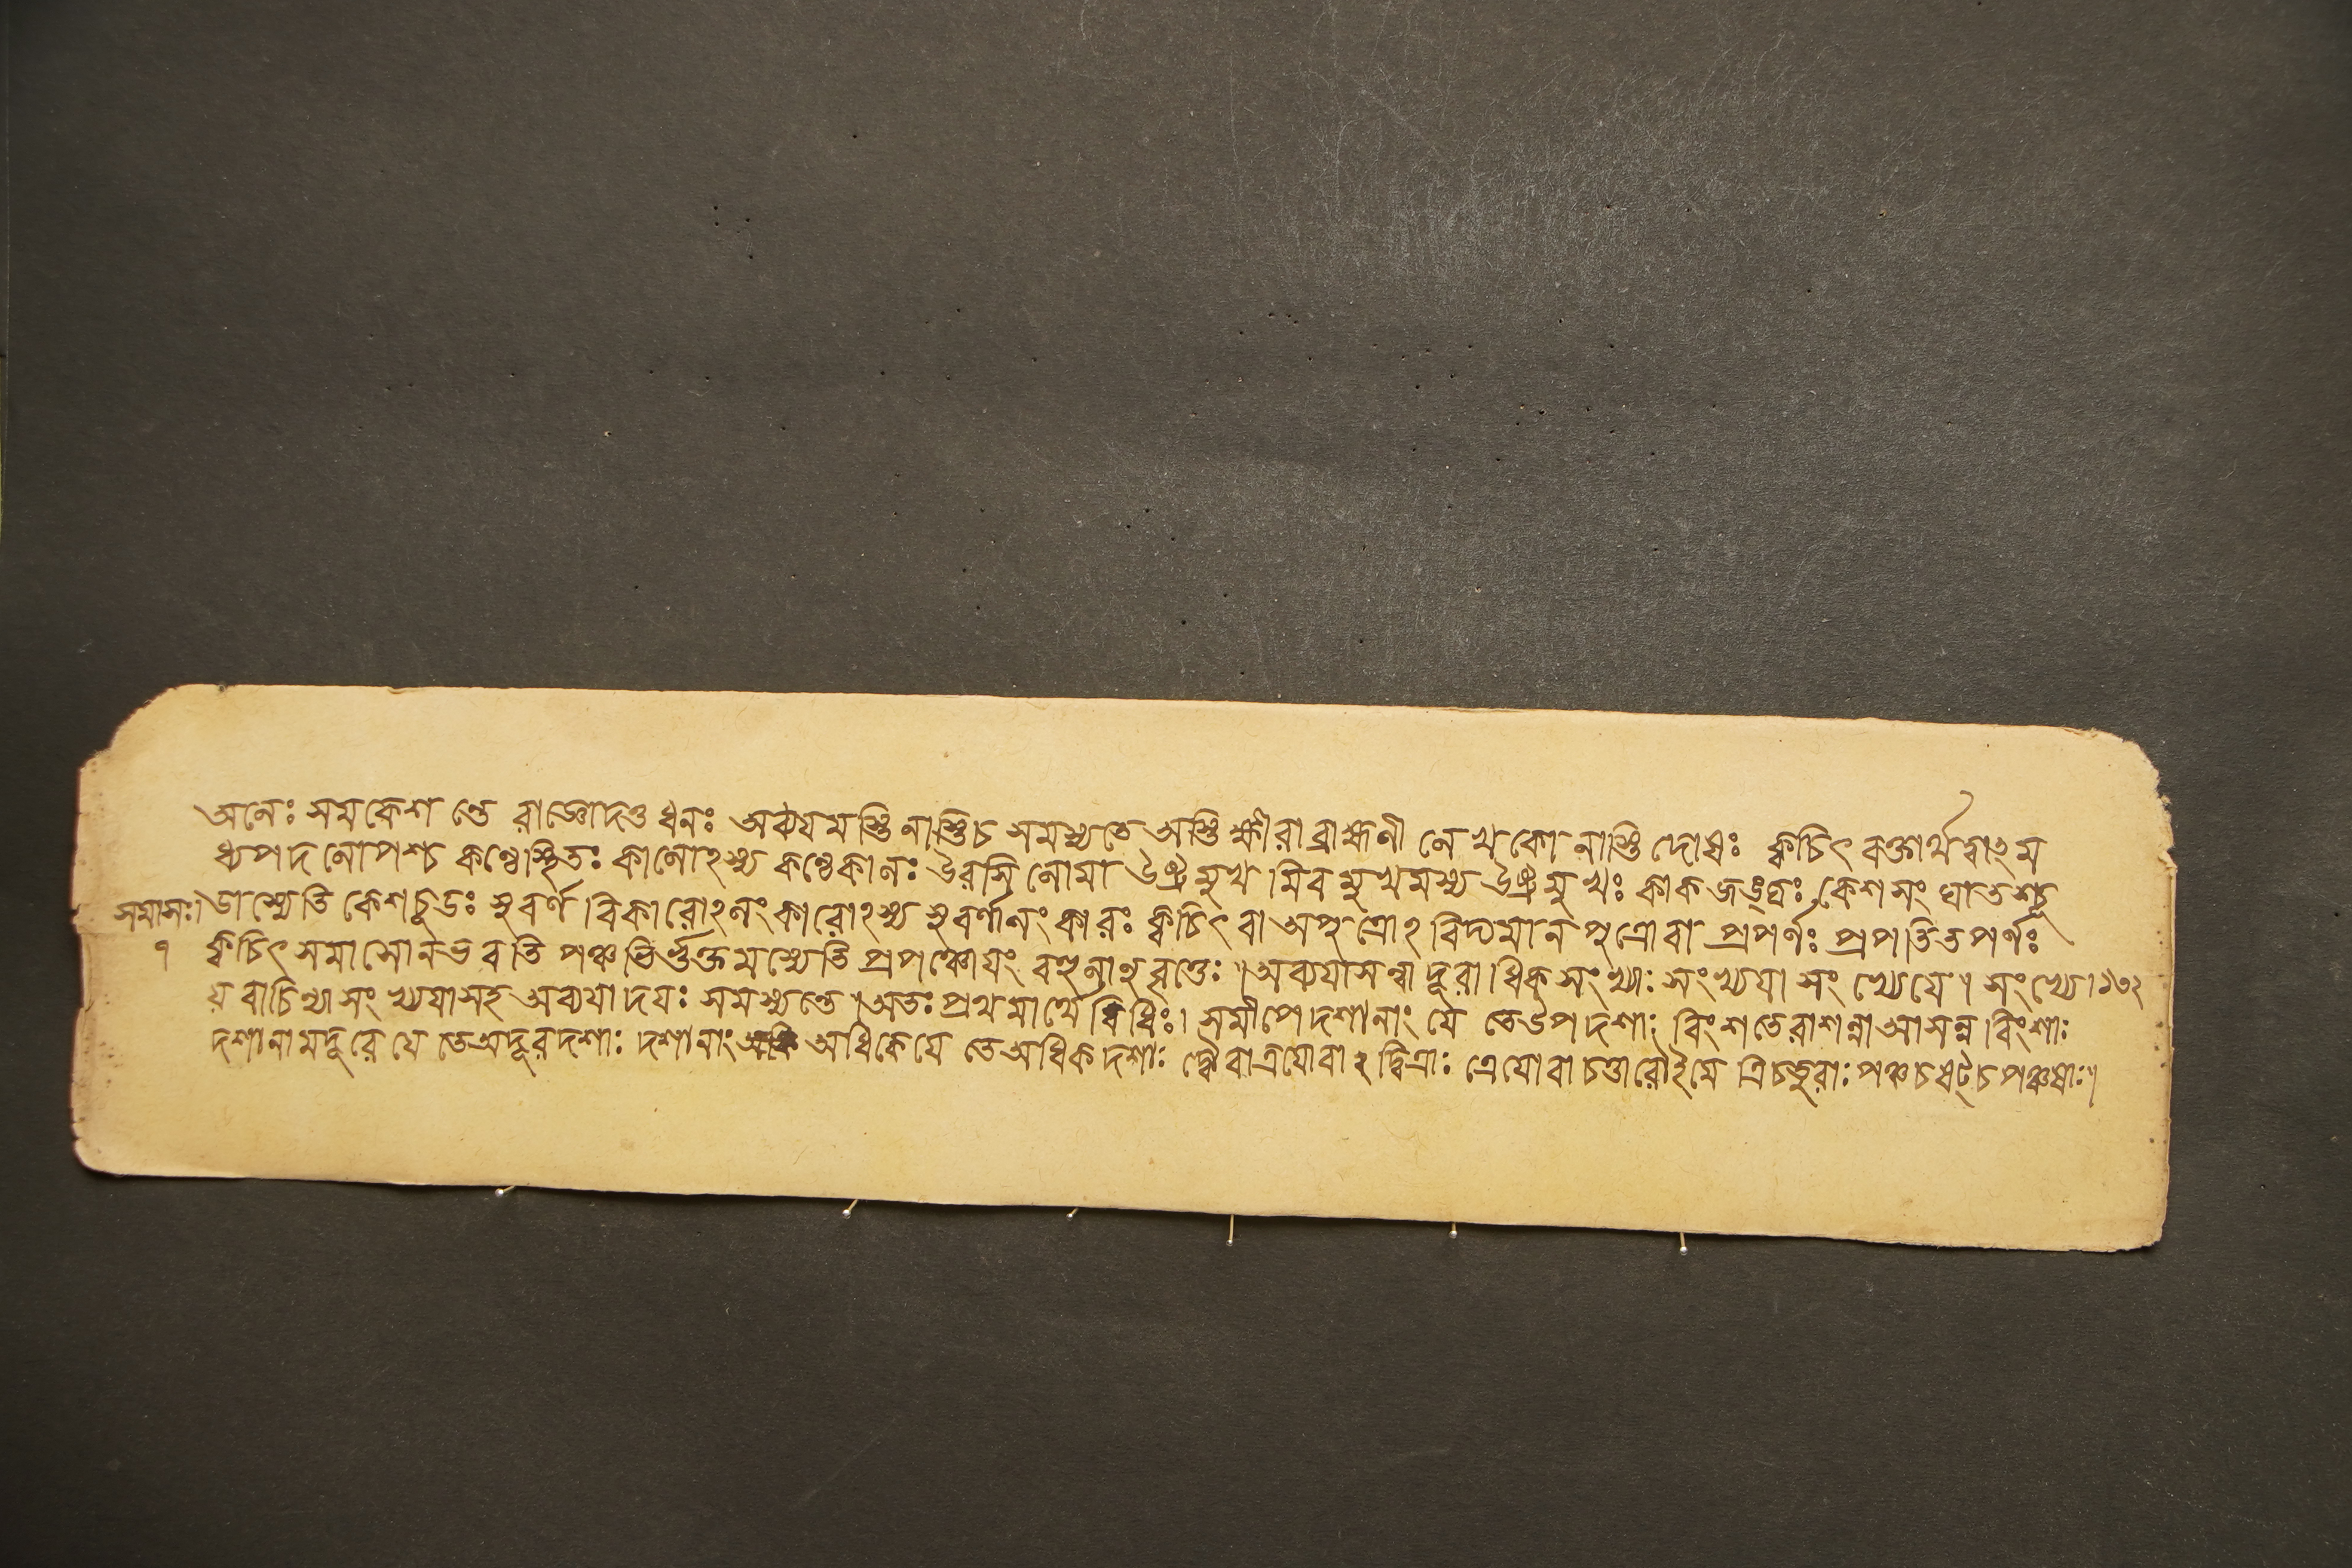 অনেঃ সমকেশ ন্তে রাজ্ঞোদণ্ড ধ্বনঃ অব্যযমস্তি নাস্তিচ সমস্যতে অস্তি ক্ষীরা ব্রাহ্মণী লেখকো নাস্তি দোষঃ ক্বচিৎ বক্তার্থত্বাৎ ম
ধ্যপদলোপশ্চ কণ্ঠেস্থিতঃ কালোঽস্য কণ্ঠেকালঃ উরসিলোমা উষ্ট্রমুখ মিব মুখমস্য উষ্ট্রমুখঃ কাকজঙ্ঘঃ কেশসং ঘাতশ্চূ
সমাসঃ। ডাস্যেতি কেশচূডঃ সুবর্ণ বিকারোঽলংকারোঽস্য সুবর্ণালংকারঃ ক্বচিৎ বা অপুত্রোঽ বিদ্যমান পুত্রোবা প্রপর্ণঃ প্রপতিতপর্ণঃ
৭ ক্বচিৎ সমাসোনভবতি পঞ্চভির্ভুক্তমস্যেতি প্রপঞ্চোযং বহুলানুবৃত্তেঃ ॥ অব্যযাসন্নাদূরাধিক সংখ্যাঃ সংখ্যযা সংখ্যেযে। সংখ্যে।১৩২
য বাচিন্যা সংখ্যযাসহ অব্যযাদযঃ সমস্যন্তে। অতঃ প্রথমার্থে বিধিঃ। সমীপে দশানাং যে তেউপদশাঃ বিংশতেরাশন্নাআসন্ন বিংশাঃ
দশানামদূরে যে তেঅদূরদশাঃ দশানাং অধিকেযে তেঅধিকদশাঃ দ্বৌবাত্রযোবা ২ দ্বিত্রাঃ ত্রেযোবা চত্তারোইমে ত্রিচতুরাঃ পঞ্চচষট্চ পঞ্চষাঃ॥